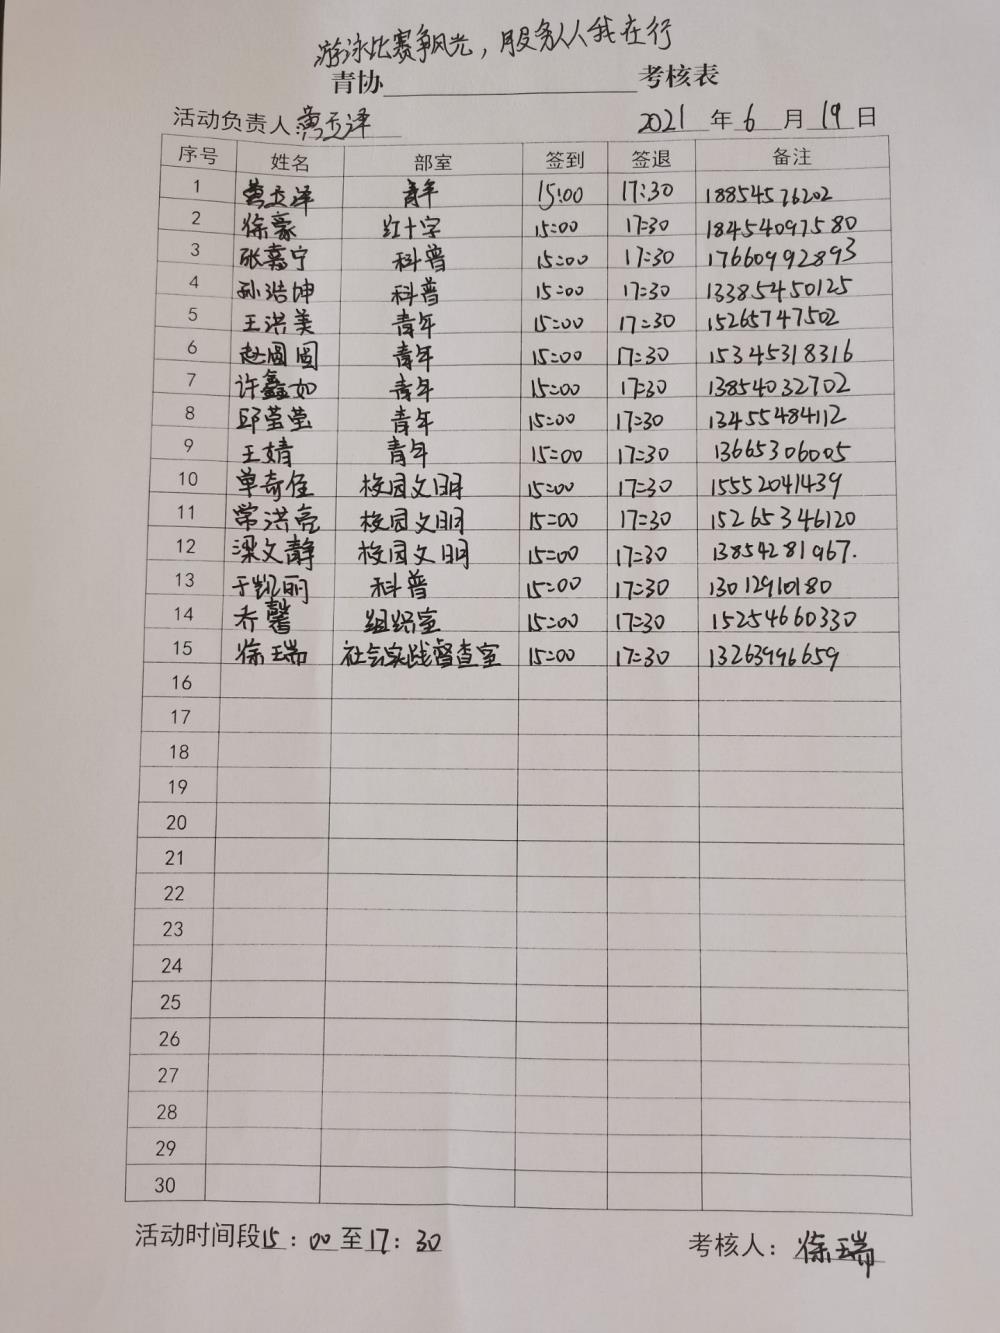 游泳比赛争风光，服务人人我在行
青协 考核表
活动负责人 黄玉泽 2021 年 6 月 19 日
序号 姓名 部室 签到 签退 备注
1 黄玉泽 青年 15:00 17:30 18854576202
2 徐豪 红十字 15:00 17:30 18454097580
3 张嘉宁 科普 15:00 17:30 17660992893
4 孙浩坤 科普 15:00 17:30 13385450125
5 王洪美 青年 15:00 17:30 15265747502
6 赵圆圆 青年 15:00 17:30 15345318316
7 许鑫如 青年 15:00 17:30 13854032702
8 邱莹莹 青年 15:00 17:30 13455484112
9 王婧 青年 15:00 17:30 13665306005
10 单奇佳 校园文明 15:00 17:30 15552041439
11 常洪亮 校园文明 15:00 17:30 15265346120
12 梁文静 校园文明 15:00 17:30 13854281967.
13 于凯丽 科普 15:00 17:30 13012910180
14 乔馨 组织室 15:00 17:30 15254660330
15 徐瑞 社会实践督查室 15:00 17:30 13263996659
16
17
18
19
20
21
22
23
24
25
26
27
28
29
30
活动时间段 15：00 至 17：30 考核人：徐瑞